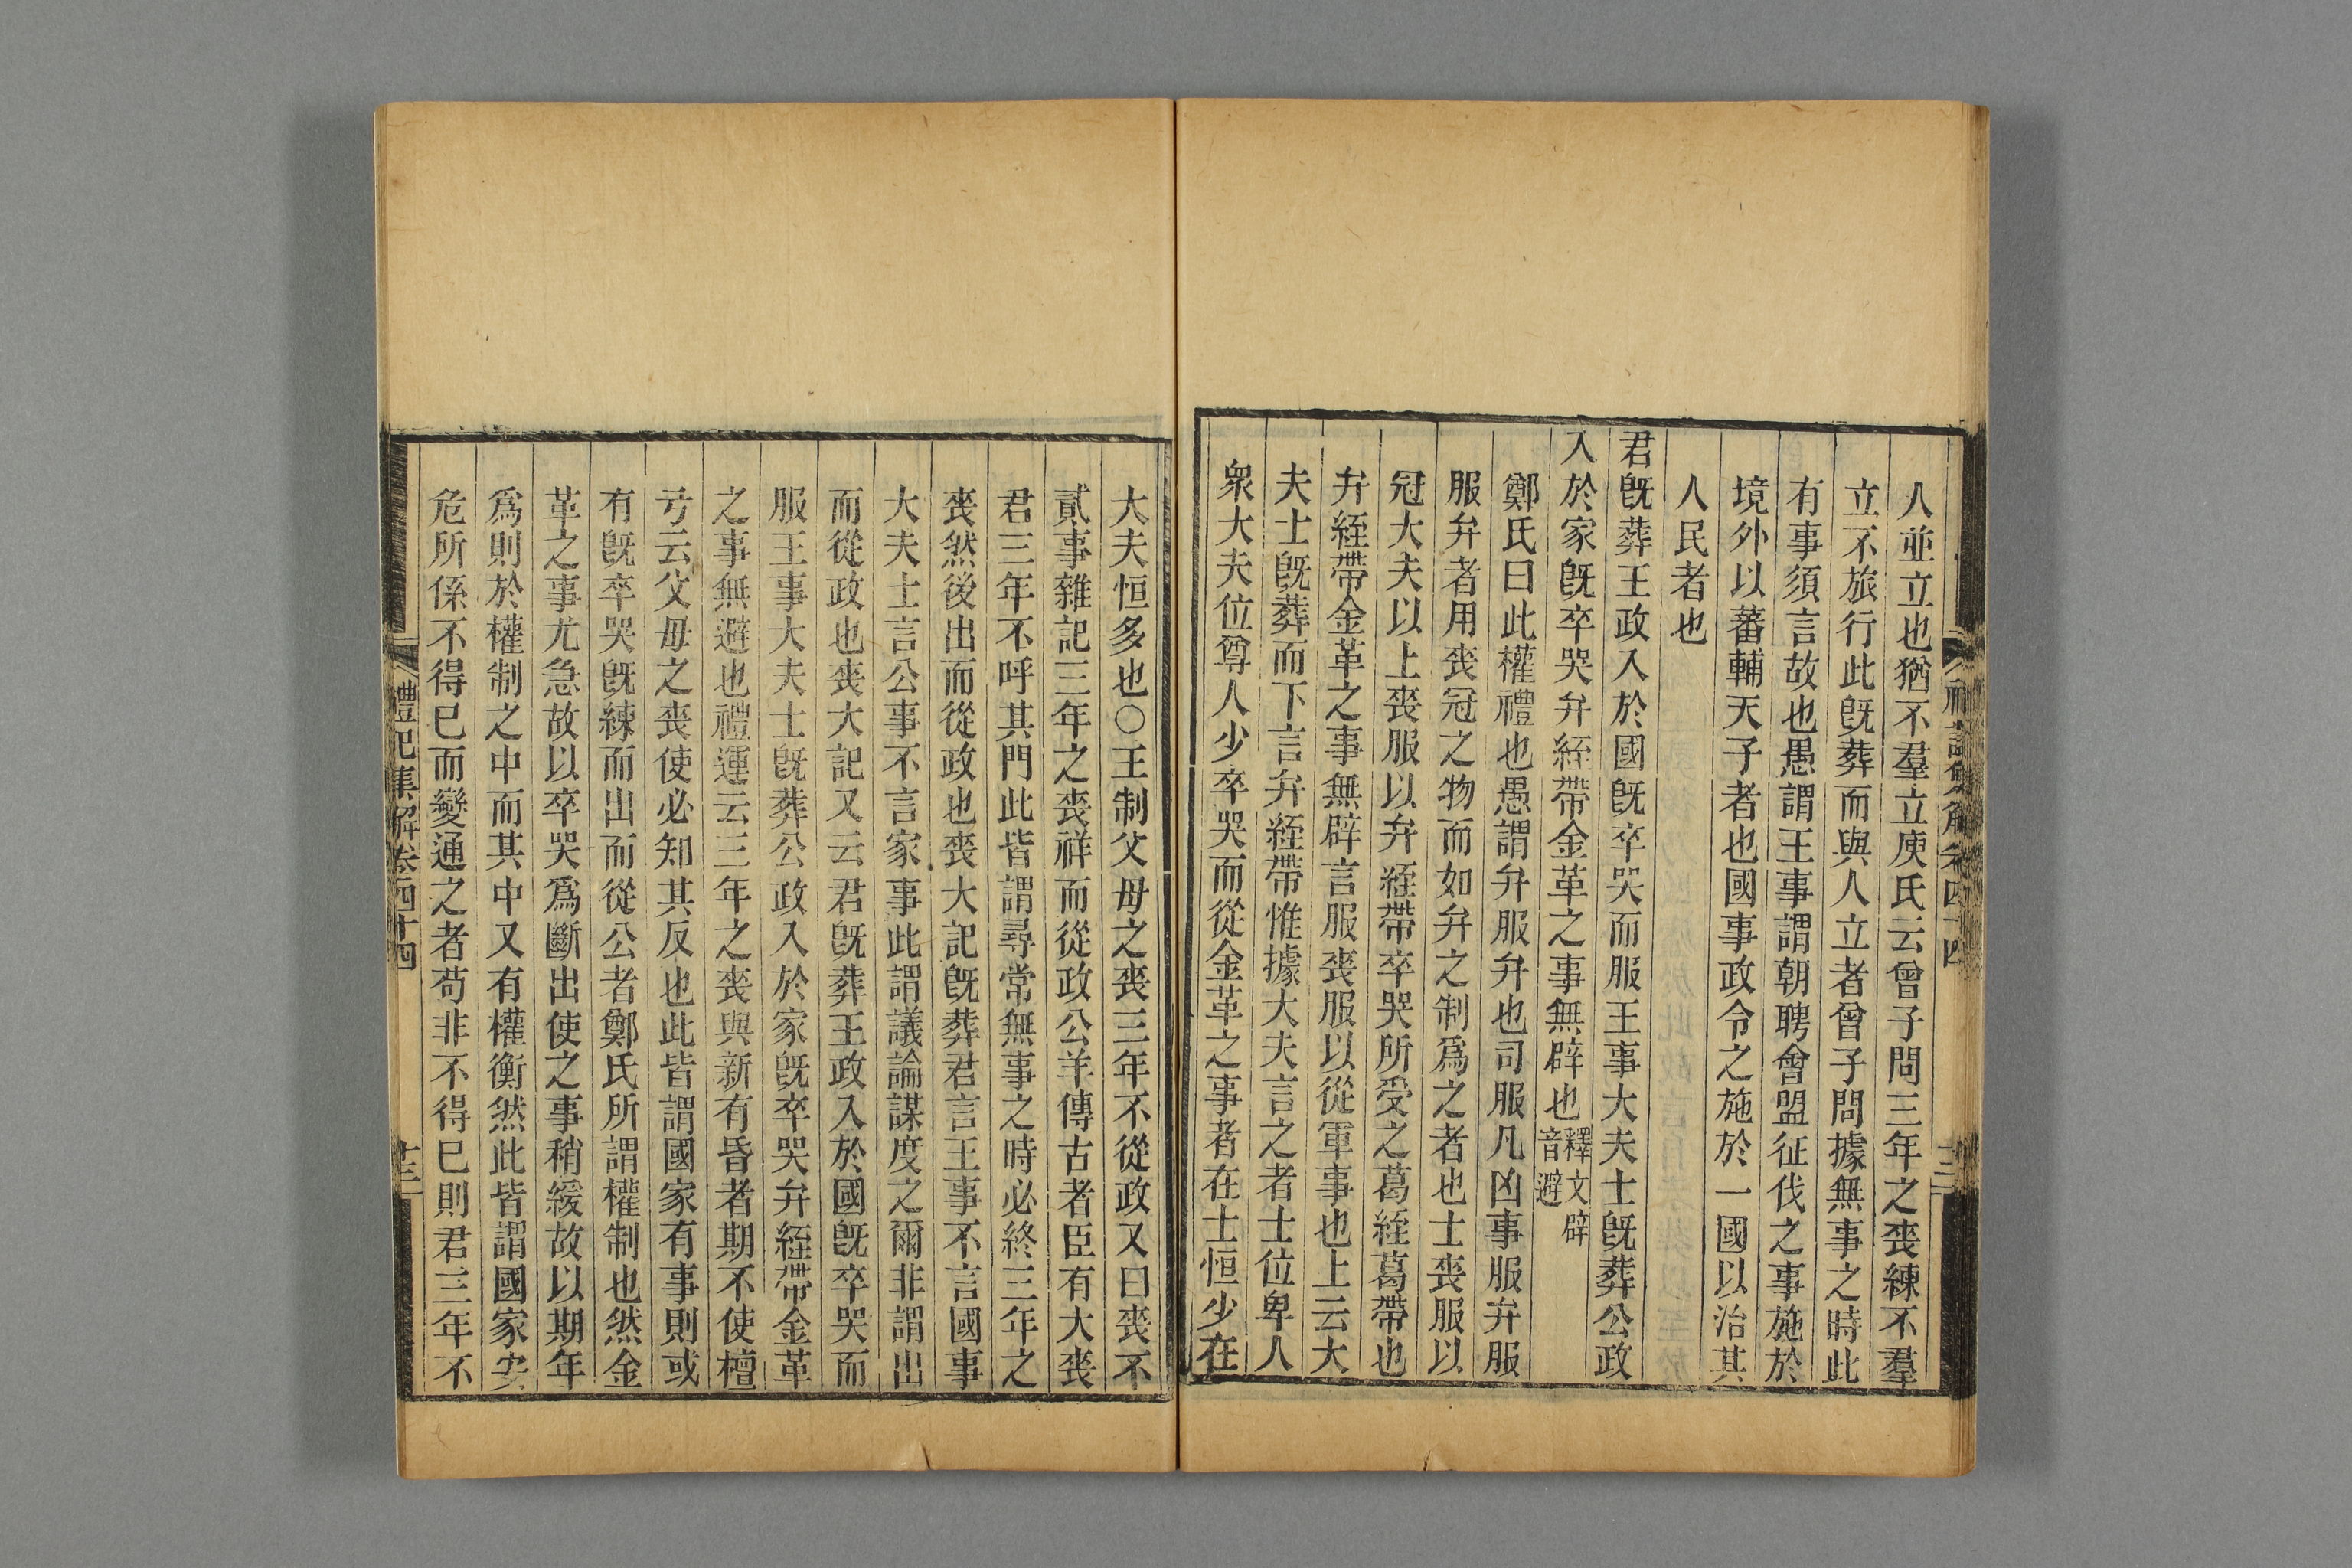 人並立也猶不羣立庾氏云曾子問三年之喪練不羣
立不旅行此旣葬而與人立者曾子問據無事之時此
有事須言故也愚謂王事謂朝聘會盟征伐之事施於
境外以蕃輔天子者也國事政令之施於一國以治其
人民者也
君旣葬王政入於國旣卒哭而服王事大夫士旣葬公政
入於家旣卒哭弁絰帶金革之事無辟也釋文辟音避
鄭氏曰此權禮也愚謂弁服弁也司服凡凶事服弁服
服弁者用喪冠之物而如弁之制爲之者也士喪服以
冠大夫以上喪服以弁絰帶卒哭所受之葛絰葛帶也
弁絰帶金革之事無辟言服喪服以從軍事也上云大
夫士旣葬而下言弁絰帶惟據大夫言之者士位卑人
衆大夫位尊人少卒哭而從金革之事者在士恒少在
大夫恒多也○王制父母之喪三年不從政又曰喪不
貳事雜記三年之喪祥而從政公羊傳古者臣有大喪
君三年不呼其門此皆謂尋常無事之時必終三年之
喪然後出而從政也喪大記旣葬君言王事不言國事
大夫士言公事不言家事此謂議論謀度之爾非謂出
而從政也喪大記又云君旣葬王政入於國旣卒哭而
服王事大夫士旣葬公政入於家旣卒哭弁絰帶金革
之事無避也禮運云三年之喪與新有昏者期不使檀
弓云父母之喪使必知其反也此皆謂國家有事則或
有旣卒哭旣練而出而從公者鄭氏所謂權制也然金
革之事尤急故以卒哭爲斷出使之事稍緩故以期年
爲則於權制之中而其中又有權衡然此皆謂國家安
危所係不得已而變通之者苟非不得已則君三年不
禮記集解卷四十四